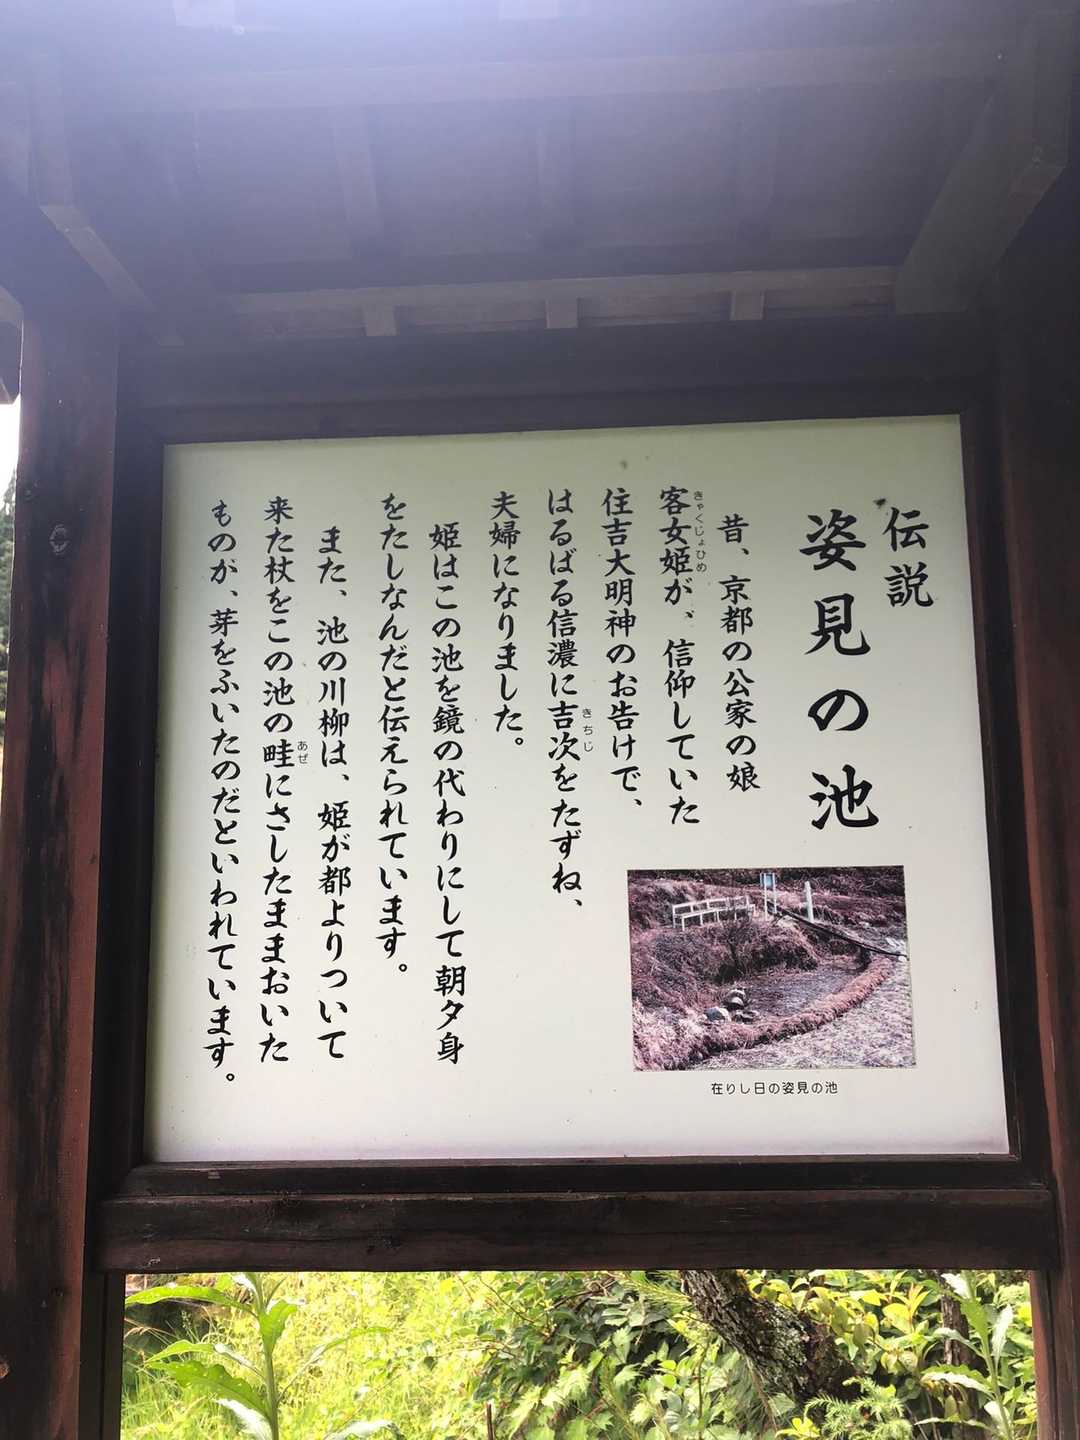 伝説
姿見の池
昔、京都の公家の娘
客女姫が、信仰していた
きゃくじょひめ
住吉大明神のお告けで、
はるばる信濃に吉次をたずね、
きちじ
夫婦になりました。
姫はこの池を鏡の代わりにして朝夕身
をたしなんだと伝えられています。
また、池の川柳は、姫が都よりついて
来た杖をこの池の畦にさしたままおいた
あぜ
ものが、芽をふいたのだといわれています。
在りし日の姿見の池